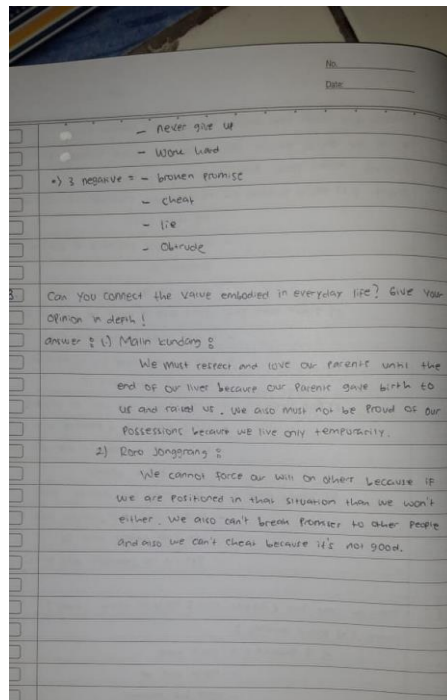 No.
Date
- never give up
- work hard
•) 3 negative = - broken promise
- cheat
- lie
- Obtrude
3 Can you connect the value embodied in everyday life? Give your
opinion in depth!
answer : 1.) Malin kundang :
We must respect and love our parents until the
end of our lives because our parents gave birth to
us and raised us. We also must not be proud of our
possessions because we live only temporarily.
2) Roro Jonggrang :
We cannot force our will on others because if
we are positioned in that situation then we won't
either. We also can't break promises to other people
and also we can't cheat because it's not good.